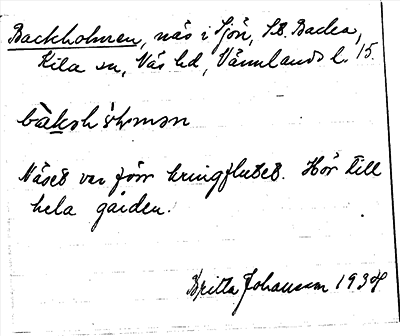 Backholmen, näs i sjön, S.B. Backa,
Kila sn, Näs hd, Värmlands l. 15.
Näset var förr kringflutet. Hör till
hela gården.
Britta Johansson 1934